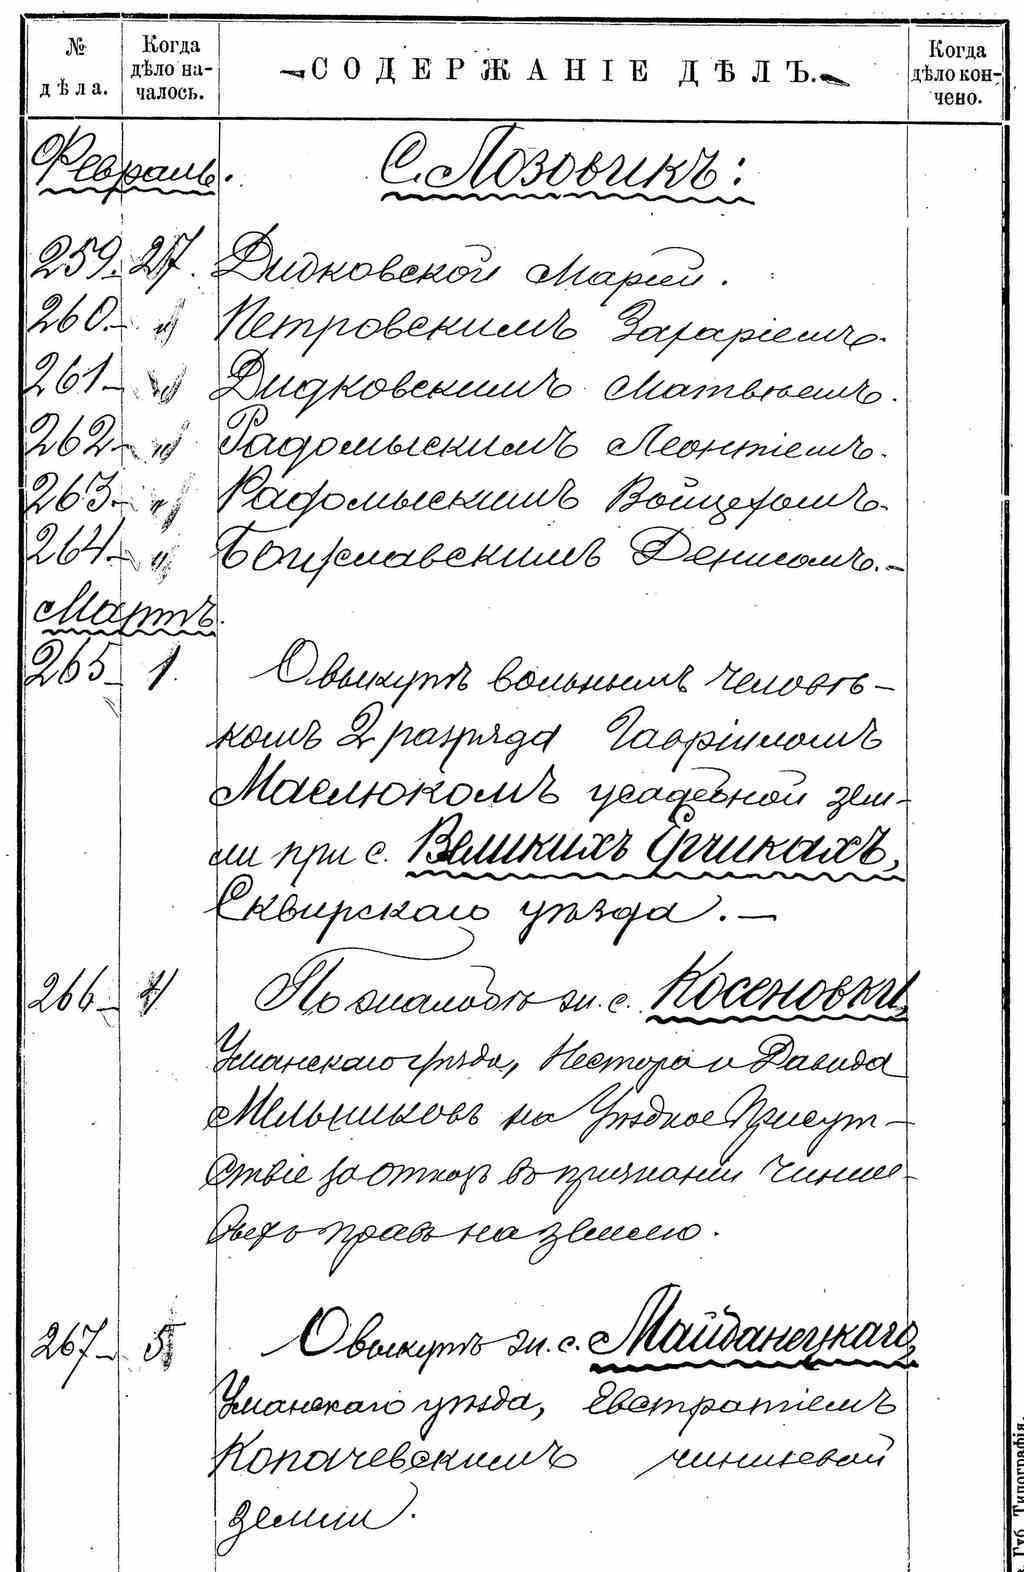 № дѣла.
Когда дѣло на-
чалось.
СОДЕРЖАНІЕ ДѢЛЪ.
Когда дѣло кон-
чено.
Февраль.
С. Лозовчикъ:
259. 27. Дидковской Маріей.
260. " Петровскимъ Захаріемъ.
261 " Дидковскимъ Матвѣемъ.
262 " Радомыскимъ Леонтіемъ.
263 " Радомыскимъ Войцехомъ.
264 " Денисомъ.
Мартъ.
265 1. О выкупѣ вольнымъ человѣ-
комъ 2 разряда Гавріиломъ
Маслюкомъ усадебной зем-
ли при с. Великихъ Ерчикахъ,
Сквирскаго уѣзда.
266 4 По жалобѣ жи. с. Косеновки,
Уманскаго уѣзда, Нестора и Давида
Мельниковъ на Уѣздное Присут-
ствіе за отказъ въ признаніи чинше-
выхъ правъ на землю.
267 5 О выкупѣ жи. с. Майданецкаго,
Уманскаго уѣзда, Евстратіемъ
Копачевскимъ чиншевой
земли.
Губ. Типографія.